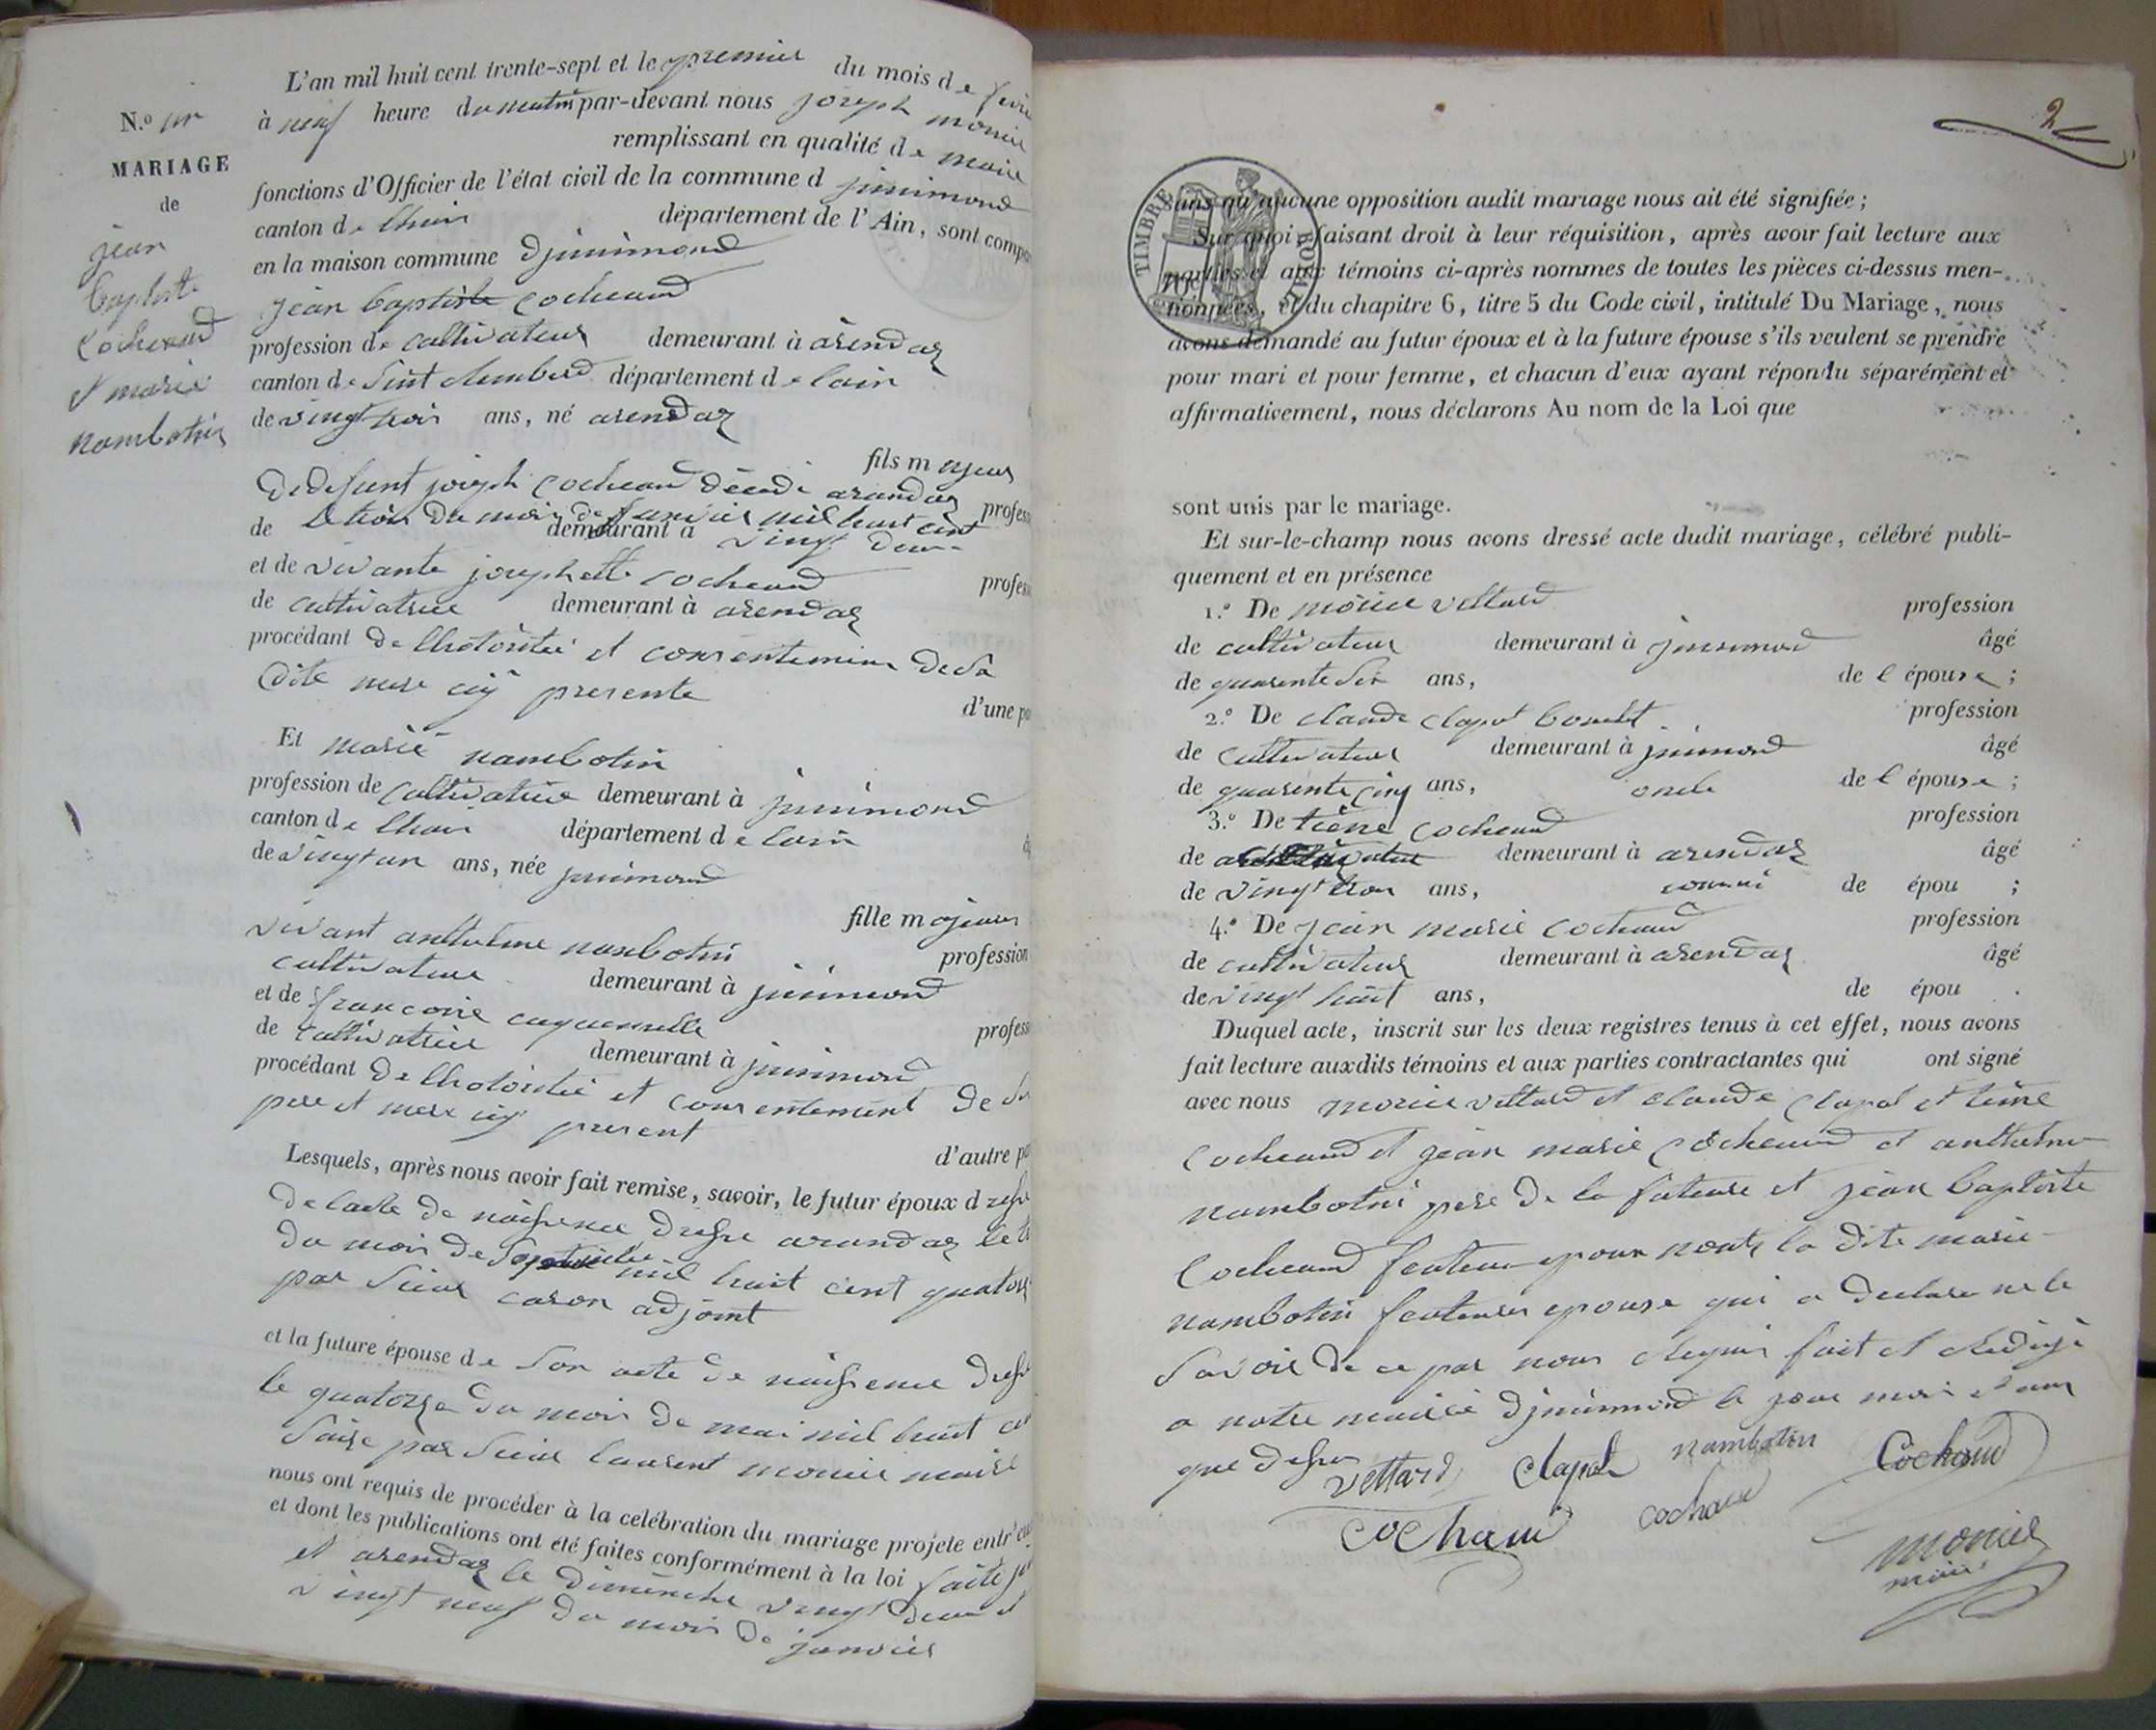 L'an mil huit cent trente-sept et le premier du mois de
à neuf heure du matin par-devant nous joseph monier
remplissant en qualité de maire
fonctions d'Officier de l'état civil de la commune d jnnimond
canton de lhuis département de l'Ain, sont
en la maison commune Djnnimond
jean baptiste cocheaud
profession de cultivateur demeurant à arendaz
canton de département de lain
de vingt trois ans, né arendaz
fils majeur
De defunt joseph Cocheaud décédé arandaz
de le trois du mois de mil huit cent
demeurant à vingt deux
et de vivante josephette cocheaud
de cultivatrice demeurant à arendaz
procédant de et consentement de sa
dite mere icy presente
d'une
Et marie nambotin
profession de cultivatrice demeurant à jnnimond
canton de lhuis département de lain
de vingt un ans, née jnnimond
fille majeure
vivant anthelme nambotin profession
cultivateur demeurant à jnnimond
et de francoise
de cultivatrice demeurant à jnnimond
procédant de et consentement de
pere et mere icy present
d'autre
Lesquels, après nous avoir fait remise, savoir, le futur époux d
De lacte de naissence dresse arandaz le
du mois de mil huit cent
par sieur caron adjoint
et la future épouse de son acte de naissence
le quatorze du mois de mai mil huit
saise par sieur laurent monier maire
nous ont requis de procéder à la celébration du mariage projete
et dont les publications ont été faites conformément à la loi faite
et arendaz le dimenche vingt deux et
vingt neuf du mois de janvier
N.o
MARIAGE
de
jean
baptiste
cocheaud
et marie
nambotin
2
TIMBRE ROYAL
sans qu'aucune opposition audit mariage nous ait été signifiée ;
Sur quoi, faisant droit à leur réquisition, après avoir fait lecture aux
parties et aux témoins ci-après nommes de toutes les pièces ci-dessus men-
tionnées, et du chapitre 6, titre 5 du Code civil, intitulé Du Mariage, nous
avons demandé au futur époux et à la future épouse s'ils veulent se prendre
pour mari et pour femme, et chacun d'eux ayant répondu séparément et
affirmativement, nous déclarons Au nom de la Loi que
sont unis par le mariage.
Et sur-le-champ nous avons dressé acte dudit mariage, célébré publi-
quement et en présence
1.o De morice vettard profession
de cultivateur demeurant à jnnimond âgé
de quarente six ans, de l épouse ;
2.o De claude clapot profession
de cultivateur demeurant à jnnimond âgé
de quarente cinq ans, oncle de l épouse ;
3.o De cocheaud profession
de demeurant à arendaz âgé
de vingt trois ans, de épou ;
4.o De jean marie cocheaud profession
de cultivateur demeurant à arendaz âgé
de vingt huit ans, de épou .
Duquel acte, inscrit sur les deux registres tenus à cet effet, nous avons
fait lecture auxdits témoins et aux parties contractantes qui ont signé
avec nous morice vettard et claude clapot et
cocheaud et jean marie cocheaud et anthelme
nambotin pere de la futeure et jean baptiste
cocheaud feuteur epoux la dite marie
nambotin feuteure epouse qui a declare ne le
savoir de ce par nous fait et
a notre mairie Djnnimond le jour mois et an
que dessus
Vettard Clapot nambotin Cochaud
Cochaud cochaud
monier
maire